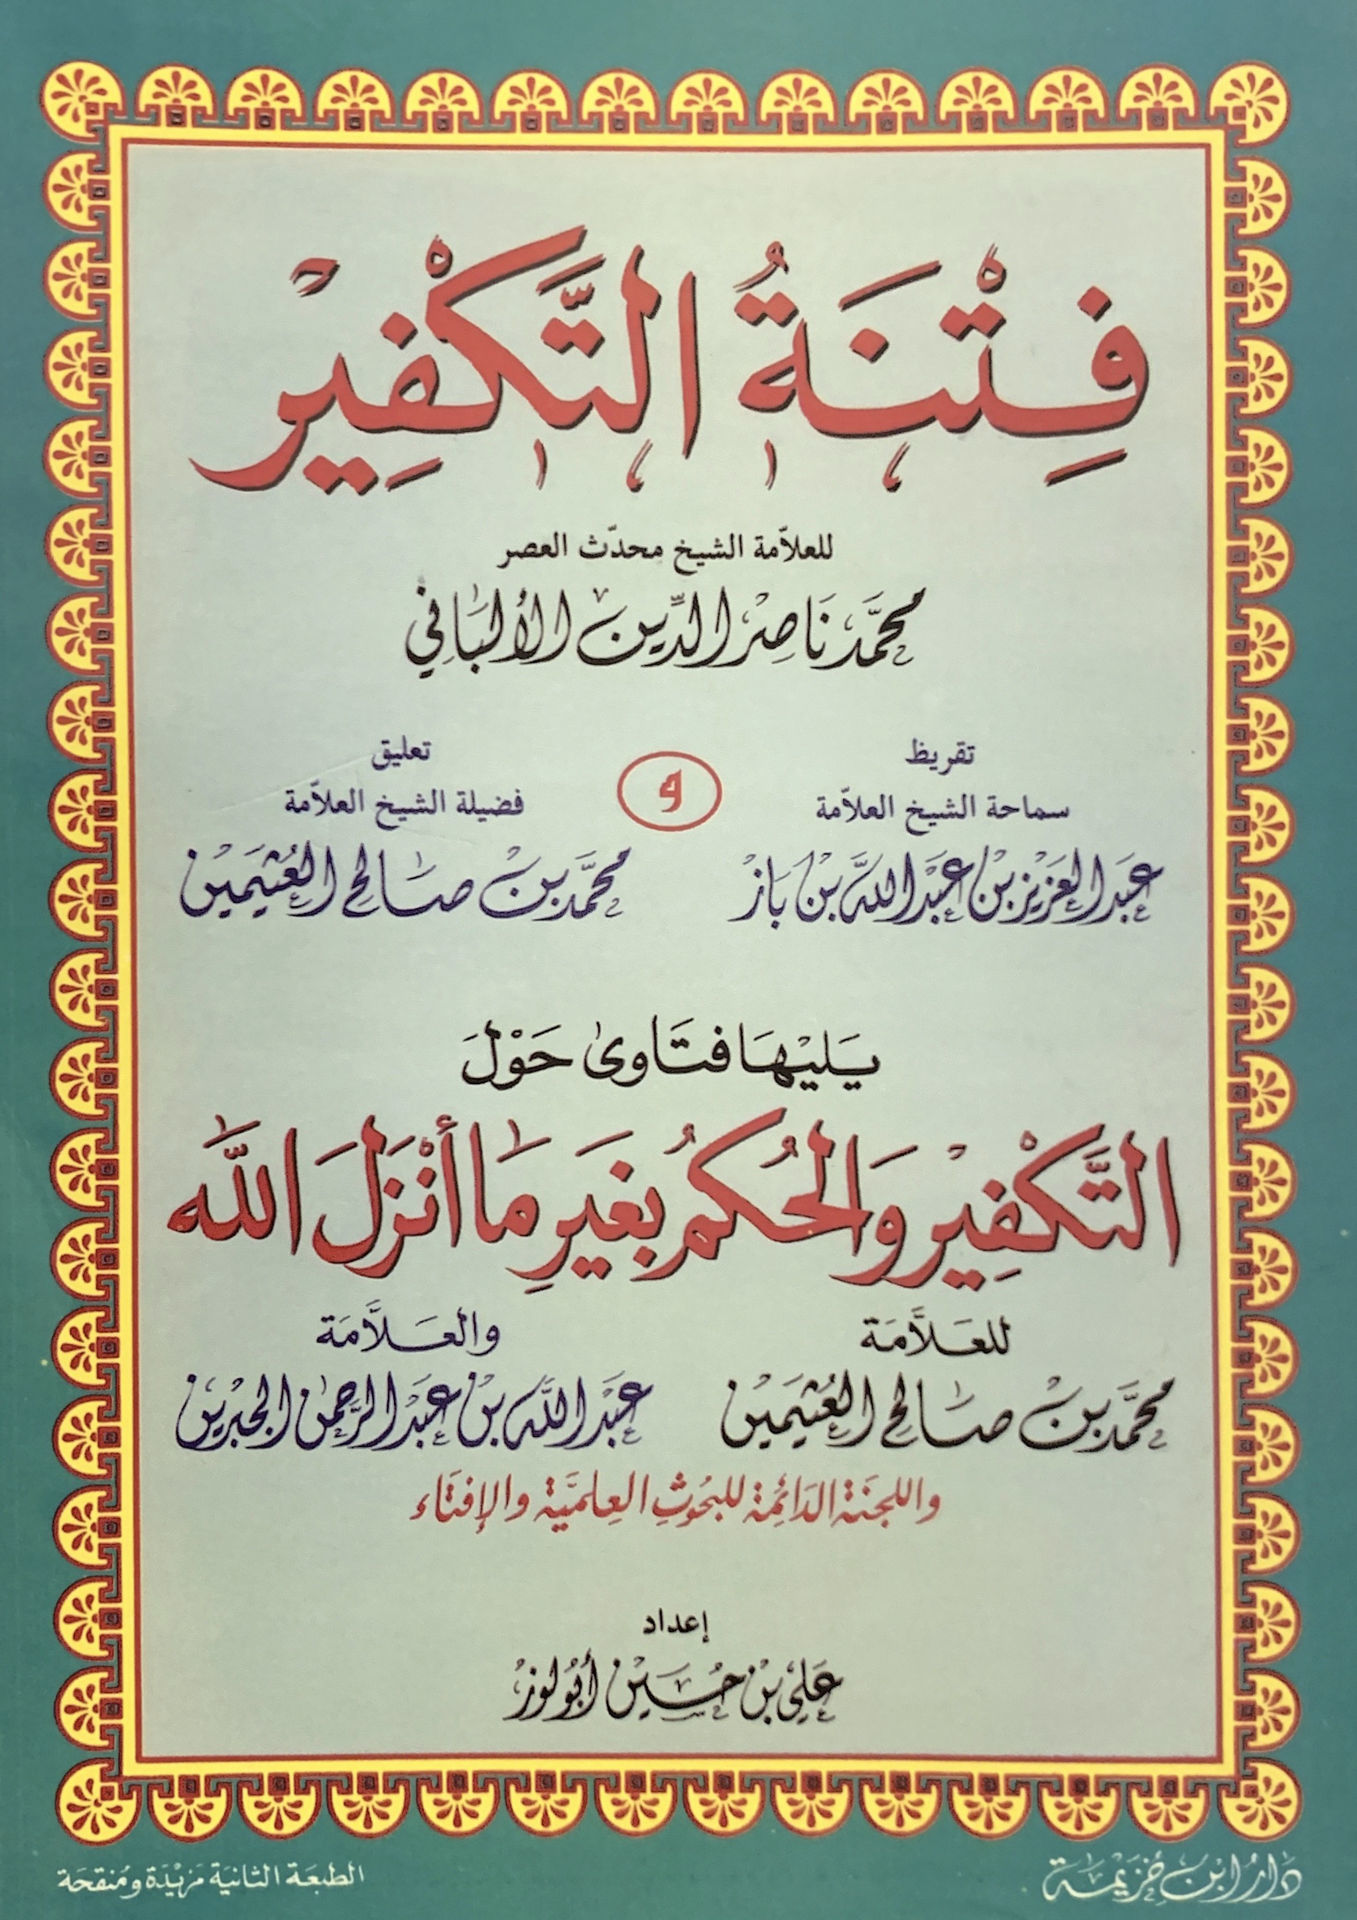 فِتْنَةُ التَّكْفِيرْ
للعلاّمة الشيخ محدّث العصر
محمَّد نَاصِر الدِّين الأَلبَاني
تقريظ
سماحة الشيخ العلاّمة
عَبد العَزيز بن عَبد اللَّه بن بَاز
و
تعليق
فضيلة الشيخ العلاّمة
محمَّد بن صَالح العُثيمَين
يَليْهَا فتَاوى حَوْلَ
التَّكْفِيرْ وَالحُكمُ بغَيرِ مَا أنْزَلَ اللَّه
للعَلاَّمَة
محمَّد بن صَالح العُثيمَين
والعَلاَّمَة
عَبْد اللَّه بن عَبْد الرَّحمن الجبْرين
واللجنَة الدَائِمَة للبحُوثِ العِلميَّة والإفتَاء
إعداد
عَلي بن حُسَين أبُو لوز
دَارُ ابْن خُزَيمَة
الطبعَة الثانيَة مَزيْدَة ومُنقحَة